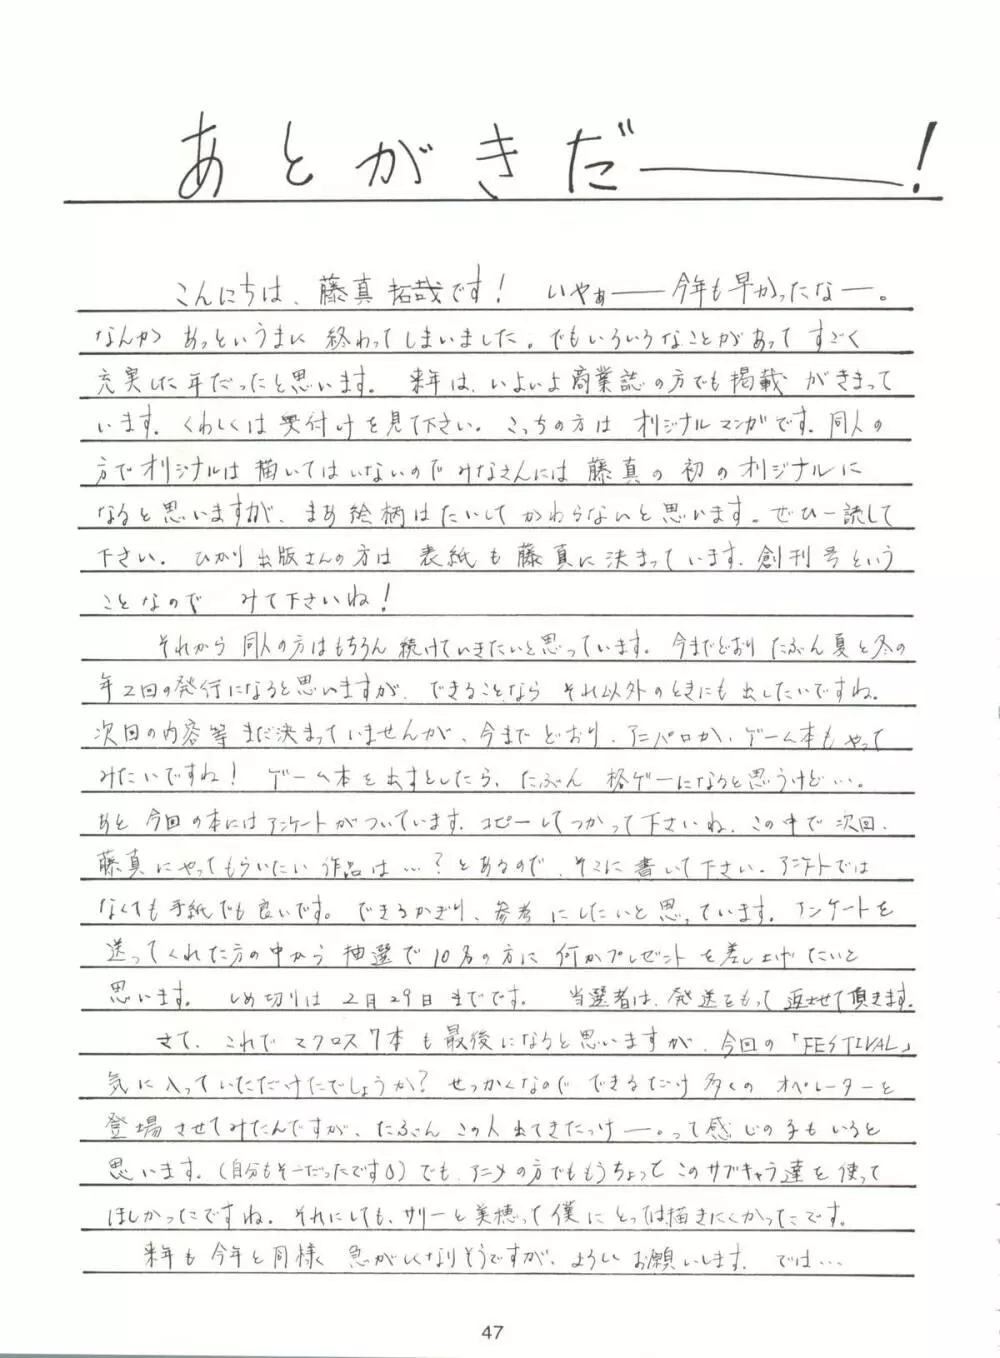 あとがきだ――!
こんにちは、藤真拓哉です! いやぁ――今年も早かったなー。
なんか あっというまに 終わってしまいました。でもいろいろなことがあって すごく
充実した年だったと思います。 来年は、いよいよ商業誌の方でも掲載 がきまって
います。くわしくは奥付けを見て下さい。こっちの方は オリジナルマンガです。同人の
方でオリジナルは描いてはいないのでみなさんには藤真の初のオリジナルに
なると思いますが、まあ絵柄はたいしてかわらないと思います。ぜひ一読して
下さい。ひかり出版さんの方は 表紙も藤真に決まっています、創刊号という
ことなので みて下さいね!
それから同人の方はもちろん続けていきたいと思っています。今までどおりたぶん夏と冬の
年2回の発行になると思いますが、できることなら それ以外のときにも出したいですね。
次回の内容等まだ決まっていませんが、今までどおり、アニパロか、ゲーム本もやって
みたいですね! ゲーム本を出すとしたら、たぶん 格ゲーになると思うけど…。
あと今回の本にはアンケートがついています、コピーしてつかって下さいね、この中で次回、
藤真にやってもらいたい作品は…?とあるので、そこに書いて下さい。アンケートでは
なくても手紙でも良いです。できるかぎり、参考にしたいと思っています。アンケートを
送ってくれた方の中から抽選で10名の方に何かプレゼントを差し上げたいと
思います。 しめ切りは2月29日までです。 当選者は、発送をもって返させて頂きます。
さて、これでマクロス7本も最後になると思いますが、今回の「FESTIVAL」
気に入っていただけたでしょうか? せっかくなので できるだけ多くの オペレーターと
登場させてみたんですが、たぶん この人出てきたっけー。って感じの子もいると
思います。(自分もそーだったです) でも、アニメの方でももうちょっとこのサブキャラ達を使って
ほしかったですね。それにしても、サリーと美穂って僕にとっては描きにくかったです。
来年も今年と同様 急がしくなりそうですが、よろしくお願いします。 では…
47